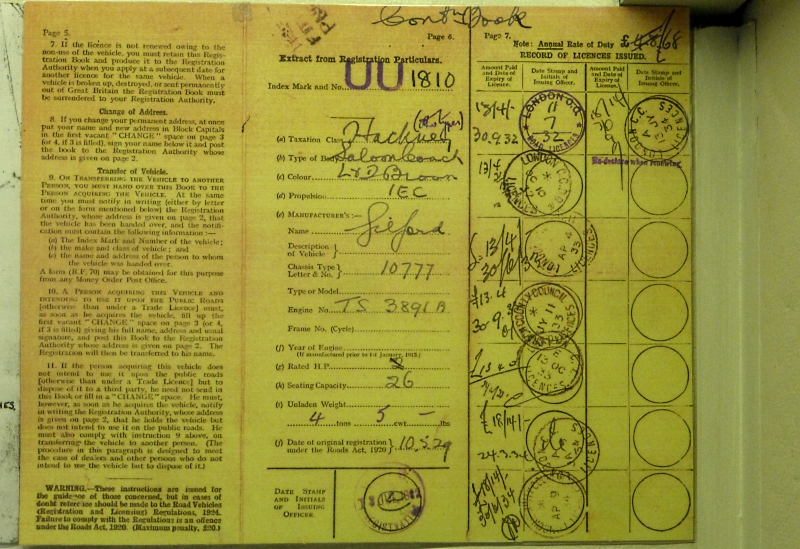 Contn Book
Page 5.
7. If the licence is not renewed owing to the
non-use of the vehicle, you must retain this Regis-
tration Book and produce it to the Registration
Authority when you apply at a subsequent date for
another licence for the same vehicle. When a
vehicle is broken up, destroyed, or sent permanently
out of Great Britain the Registration Book must
be surrendered to your Registration Authority.
Change of Address.
8. If you change your permanent address, at once
put your new name and address in Block Capitals
in the first vacant "CHANGE" space on page 3
(or 4, if 3 is filled), sign your name below it and post
the book to the Registration Authority whose
address is given on page 2.
Transfer of Vehicle.
9. ON TRANSFERRING THE VEHICLE TO ANOTHER
PERSON, YOU MUST HAND OVER THIS BOOK TO THE
PERSON ACQUIRING THE VEHICLE. At the same
time you must notify in writing (either by letter
or on the form mentioned below) the Registration
Authority, whose address is given on page 2, that
the vehicle has been handed over, and the notifi-
cation must contain the following information:—
(a) The Index Mark and Number of the vehicle;
(b) the make and class of vehicle; and
(c) the name and address of the person to whom
the vehicle was handed over.
A form (R.F. 70) may be obtained for this purpose
from any Money Order Post Office.
10. A PERSON ACQUIRING THIS VEHICLE AND
INTENDING TO USE IT UPON THE PUBLIC ROADS
[otherwise than under a Trade Licence] must,
as soon as he acquires the vehicle, fill up the
first vacant "CHANGE" space on page 3 (or 4,
if 3 is filled) giving his full name, address and usual
signature, and post this Book to the Registration
Authority whose address is given on page 2. The
Registration will then be transferred to his name.
11. If the person acquiring this vehicle does
not intend to use it upon the public roads
[otherwise than under a Trade Licence] but to
dispose of it to a third party, he need not send in
this Book or fill in a "CHANGE" space. He must,
however, as soon as he acquires the vehicle, notify
in writing the Registration Authority, whose address
is given on page 2, that he holds the vehicle but
does not intend to use it on the public roads. He
must also comply with instruction 9 above, on
transferring the vehicle to another person. (The
procedure in this paragraph is designed to meet
the case of dealers and other persons who do not
intend to use the vehicle but to dispose of it.)
WARNING.—These instructions are issued for
the guidance of those concerned, but in cases of
doubt reference should be made to the Road Vehicles
(Registration and Licensing) Regulations, 1924.
Failure to comply with the Regulations is an offence
under the Roads Act, 1920. (Maximum penalty, £20.)
Page 6.
Extract from Registration Particulars.
Index Mark and No. UU 1810
(a) Taxation Class Hackney
(b) Type of Body Saloon Coach
(c) Colour Lt & D Brown
(d) Propulsion IEC
(e) MANUFACTURER'S:—
Name Gilford
Description
of Vehicle
Chassis Type
Letter & No. 10777
Type or Model
Engine No. TS 3891 B
Frame No. (Cycle)
(f) Year of Engine
(If manufactured prior to 1st January, 1913.)
(g) Rated H.P.
(h) Seating Capacity 26
(i) Unladen Weight
4 tons 5 cwt — lbs
(j) Date of original registration
under the Roads Act, 1920 10.5.29
DATE STAMP
AND INITIALS
OF ISSUING
OFFICER.
Page 7.
Note: Annual Rate of Duty £ 48/68
RECORD OF LICENCES ISSUED.
Amount Paid
and Date of
Expiry of
Licence.
Date Stamp and
Initials of
Issuing Officer.
Amount Paid
and Date of
Expiry of
Licence.
Date Stamp and
Initials of
Issuing Officer.
13/4/-
30.9.32
LONDON C.C.
11
7
32
ROAD LICENCES
No declon when renewing
LONDON
£ 13/4
30/6/33
AP 4
33
£13.4
30.9.33
COUNTY COUNCIL
JY 11
33
OC
£ 18/14/-
24.3.34
30/6/34
AP 9